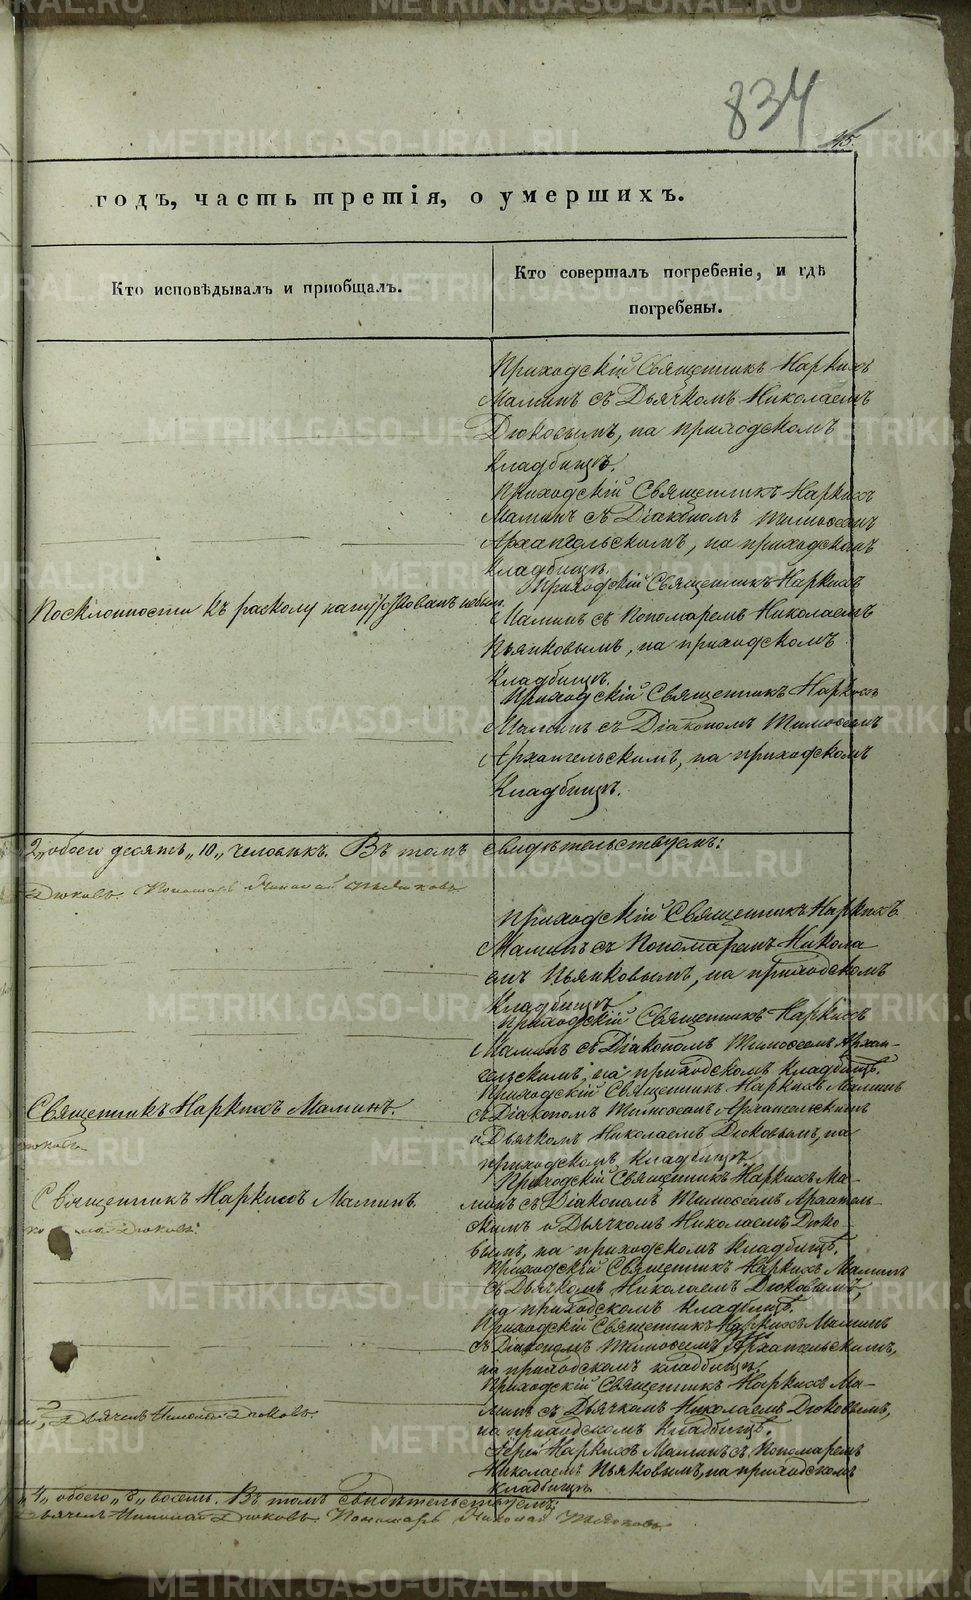 834
45.
годъ, часть третія, о умершихъ.
Кто исповѣдывалъ и пріобщалъ.
Кто совершалъ погребеніе, и гдѣ
погребены.
Приходскій Священникъ Наркисъ
Маминъ съ Дьячкомъ Николаемъ
Дюковымъ, на приходскомъ
кладбищѣ.
Приходскій Священникъ Наркисъ
Маминъ съ Діакономъ Тимоѳеемъ
Архангельскимъ, на приходскомъ
кладбищѣ.
По склонности къ расколу
Приходскій Священникъ Наркисъ
Маминъ съ Пономаремъ Николаемъ
Пьянковымъ, на приходскомъ
кладбищѣ.
Приходскій Священникъ Наркисъ
Маминъ съ Діакономъ Тимоѳеемъ
Архангельскимъ, на приходскомъ
кладбищѣ.
2, обоего десять „10„ человѣкъ. Въ томъ свидѣтельствуемъ:
Дюковъ. Пономарь Николай Пьянковъ
Приходскій Священникъ Наркисъ
Маминъ съ Пономаремъ Никола
емъ Пьянковымъ, на приходскомъ
кладбищѣ.
Приходскій Священникъ Наркисъ
Маминъ съ Діакономъ Тимоѳеемъ Архан-
гельскимъ, на приходскомъ кладбищѣ.
Священникъ Наркисъ Маминъ.
Приходскій Священникъ Наркисъ Маминъ
съ Діакономъ Тимоѳеемъ Архангельскимъ
и Дьячкомъ Николаемъ Дюковымъ, на
приходскомъ кладбищѣ.
Священникъ Наркисъ Маминъ.
Дюковъ
Приходскій Священникъ Наркисъ Ма-
минъ съ Діакономъ Тимоѳеемъ Архангель-
скимъ и Дьячкомъ Николаемъ Дюко-
вымъ, на приходскомъ кладбищѣ.
Приходскій Священникъ Наркисъ Маминъ
съ Дьячкомъ Николаемъ Дюковымъ,
на приходскомъ кладбищѣ.
Приходскій Священникъ Наркисъ Маминъ
съ Діакономъ Тимоѳеемъ Архангельскимъ,
на приходскомъ кладбищѣ.
Приходскій Священникъ Наркисъ Ма-
минъ съ Дьячкомъ Николаемъ Дюковымъ,
на приходскомъ кладбищѣ.
Дьячекъ Николай Дюковъ.
Іерей Наркисъ Маминъ съ Пономаремъ
Николаемъ Пьянковымъ, на приходскомъ
кладбищѣ.
„4„ обоего „8„ восемь. Въ томъ свидѣтельствуемъ:
Дьячекъ Николай Дюковъ. Пономарь Николай Пьянковъ
METRIKI.GASO-URAL.RU